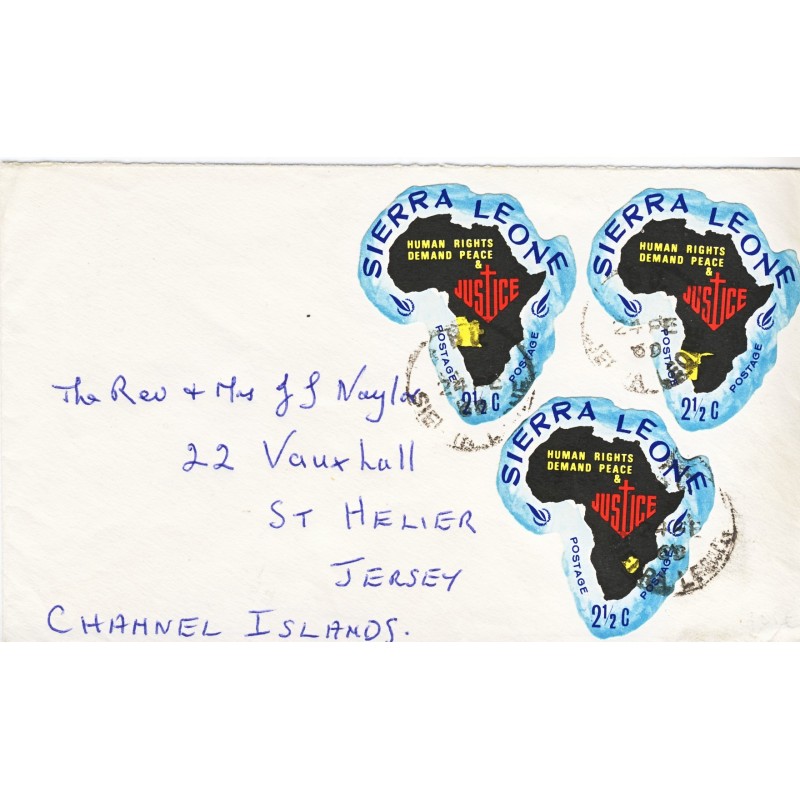 SIERRA LEONE
HUMAN RIGHTS
DEMAND PEACE
&
JUSTICE
POSTAGE
POSTAGE
2½ C
SIERRA LEONE
HUMAN RIGHTS
DEMAND PEACE
&
JUSTICE
POSTAGE
POSTAGE
2½ C
The Rev + Mrs J J Naylor
22 Vauxhall
ST HELIER
JERSEY
CHANNEL ISLANDS.
SIERRA LEONE
HUMAN RIGHTS
DEMAND PEACE
&
JUSTICE
POSTAGE
POSTAGE
2½ C